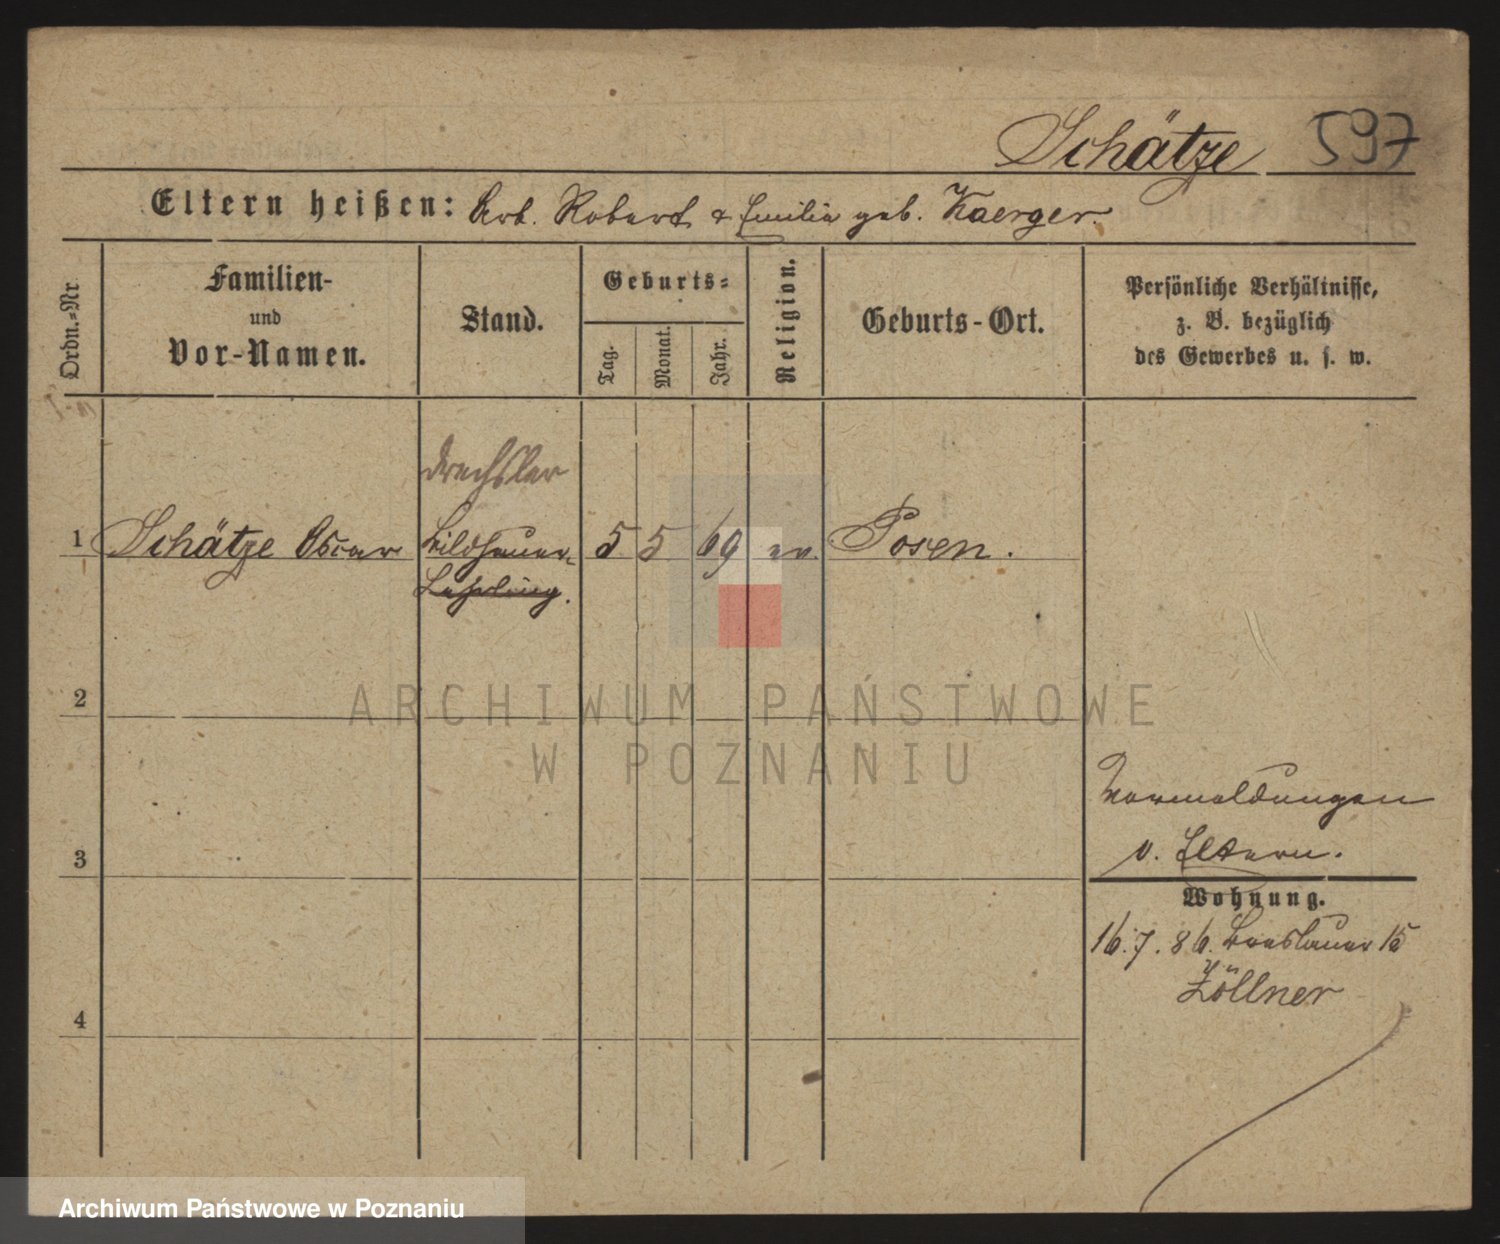 Schätze 597
Eltern heißen: Arb. Robert & Emilie geb. Kaerger.
Ordn.-Nr
Familien-
und
Vor-Namen.
Stand.
Geburts-
Tag.
Monat.
Jahr.
Religion.
Geburts-Ort.
Persönliche Verhältnisse,
z. B. bezüglich
des Gewerbes u. s. w.
Drechsler
1 Schätze Oscar Bildhauer- 5 5 69 ev. Posen.
Lehrling.
2
ARCHIWUM PAŃSTWOWE
W POZNANIU
Vormeldungen
v. Eltern.
3
Wohnung.
16.7.86. Breslauer 15
Zöllner
4
Archiwum Państwowe w Poznaniu